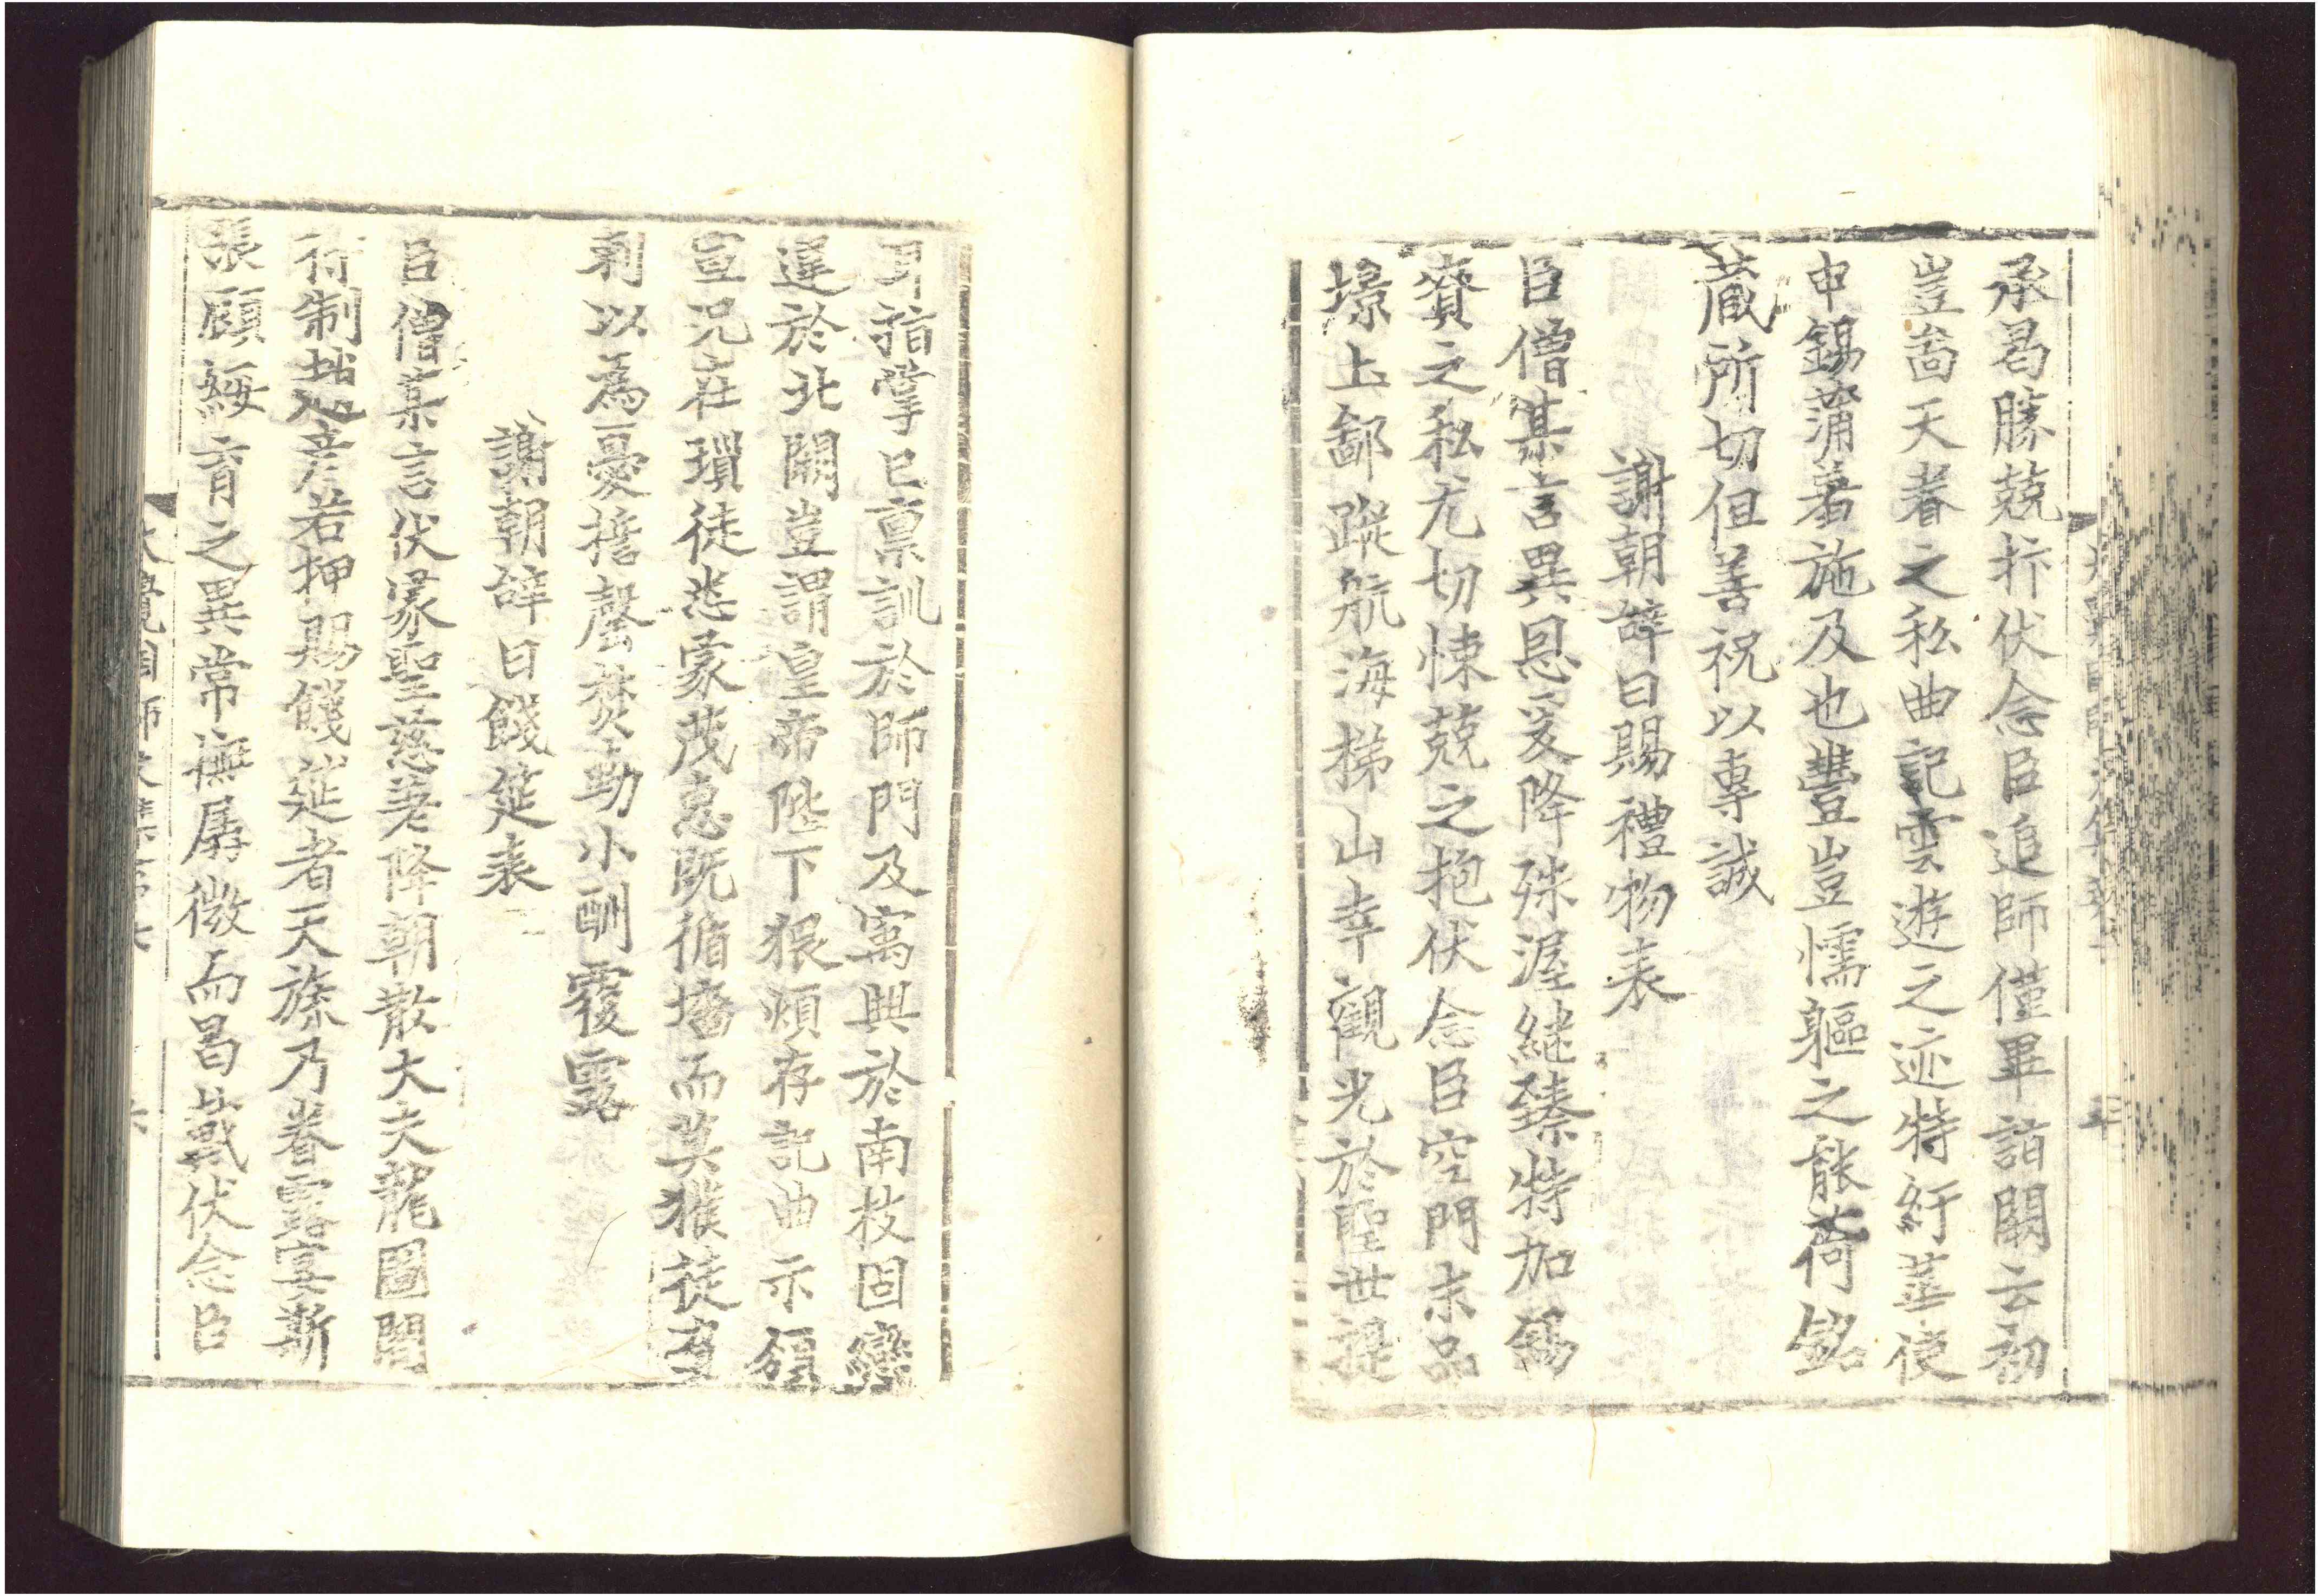 承曷勝兢抃伏念臣追師僅畢詣闕云初
豈啚天眷之私曲記雲遊之迹特紆莁使
申錫蒲著施及也豊豈懦軀之能荷銘
藏所切但善祝以專誠
謝朝辝日賜禮物表
臣僧某言異恩爰降殊渥継臻特加錫
賚之私尤切悚兢之抱伏念臣空門末品
壕上鄙蹤航海梯山幸觀光於聖世提
耳指掌已禀訓於師門及寓興於南枝固戀
遲於北闕豈謂皇帝陛下猥煩存記曲示領
宣况在瑣徒悉蒙茂恵既循墻而莫獲徒
刻以爲憂擔罄焚勤小酬覆露
謝朝辝日餞筵表
臣僧某言伏蒙聖慈差降朝散大夫龍圖閣
待制 若押賜餞筵者天蔭乃眷露宴斯
張顧綏育之異常撫孱微而曷戴伏念臣
大覺國師文集第六